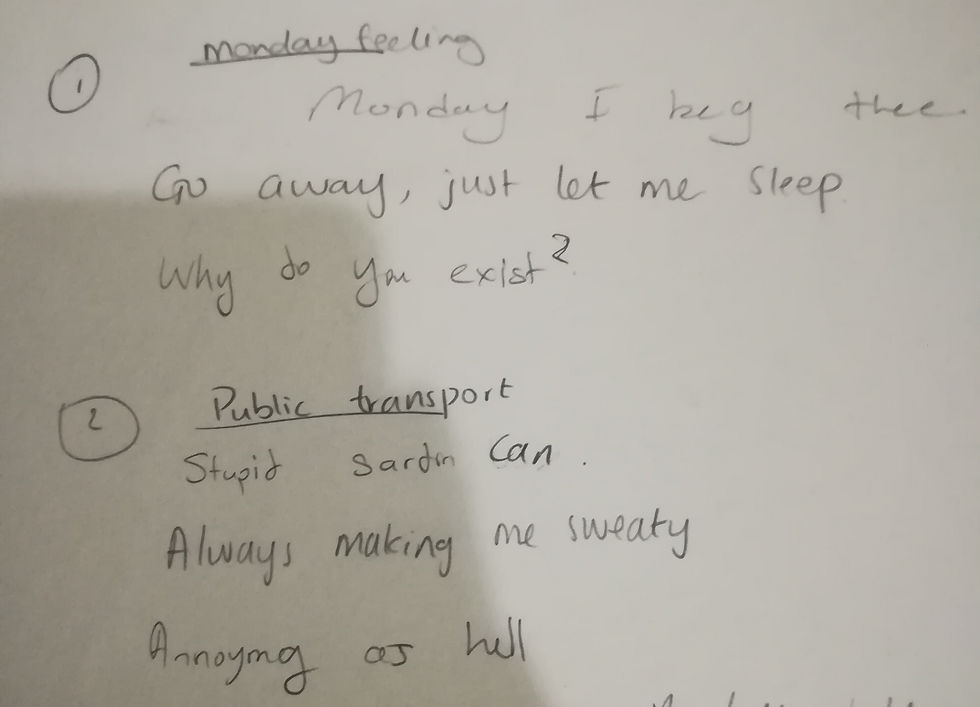 1
monday feeling
Monday I beg thee.
Go away, just let me sleep.
Why do you exist?
2
Public transport
Stupid sardin can.
Always making me sweaty
Annoying as hell